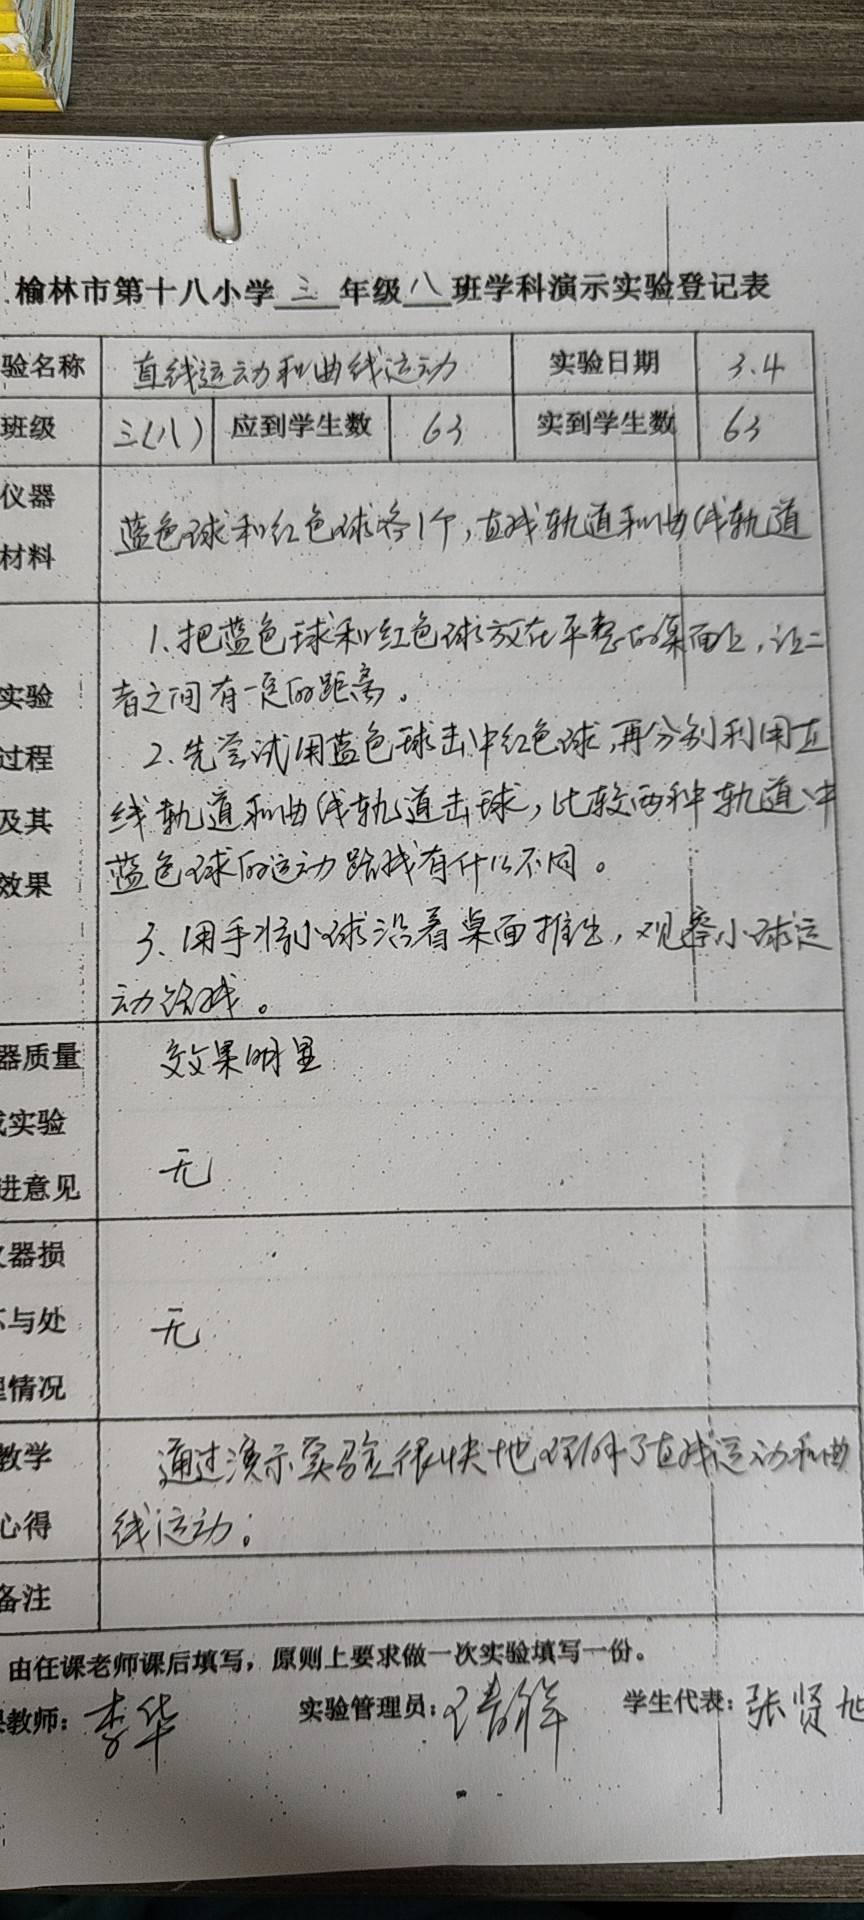 榆林市第十八小学 三 年级 八 班学科演示实验登记表
验名称 直线运动和曲线运动 实验日期 3.4
班级 三(八) 应到学生数 63 实到学生数 63
仪器
材料
蓝色球和红色球各1个,直线轨道和曲线轨道
实验
过程
及其
效果
1.把蓝色球和红色球放在平整的桌面上,让二
者之间有一定的距离。
2.先尝试用蓝色球击中红色球,再分别利用直
线轨道和曲线轨道击球,比较两种轨道中
蓝色球的运动路线有什么不同。
3.用手将小球沿着桌面推出,观察小球运
动路线。
器质量
实验
进意见
效果明显
无
器损
与处
情况
无
教学
心得
通过演示实验很快地理解了直线运动和曲
线运动。
备注
由任课老师课后填写,原则上要求做一次实验填写一份。
教师: 李华 实验管理员: 学生代表: 张贤旭